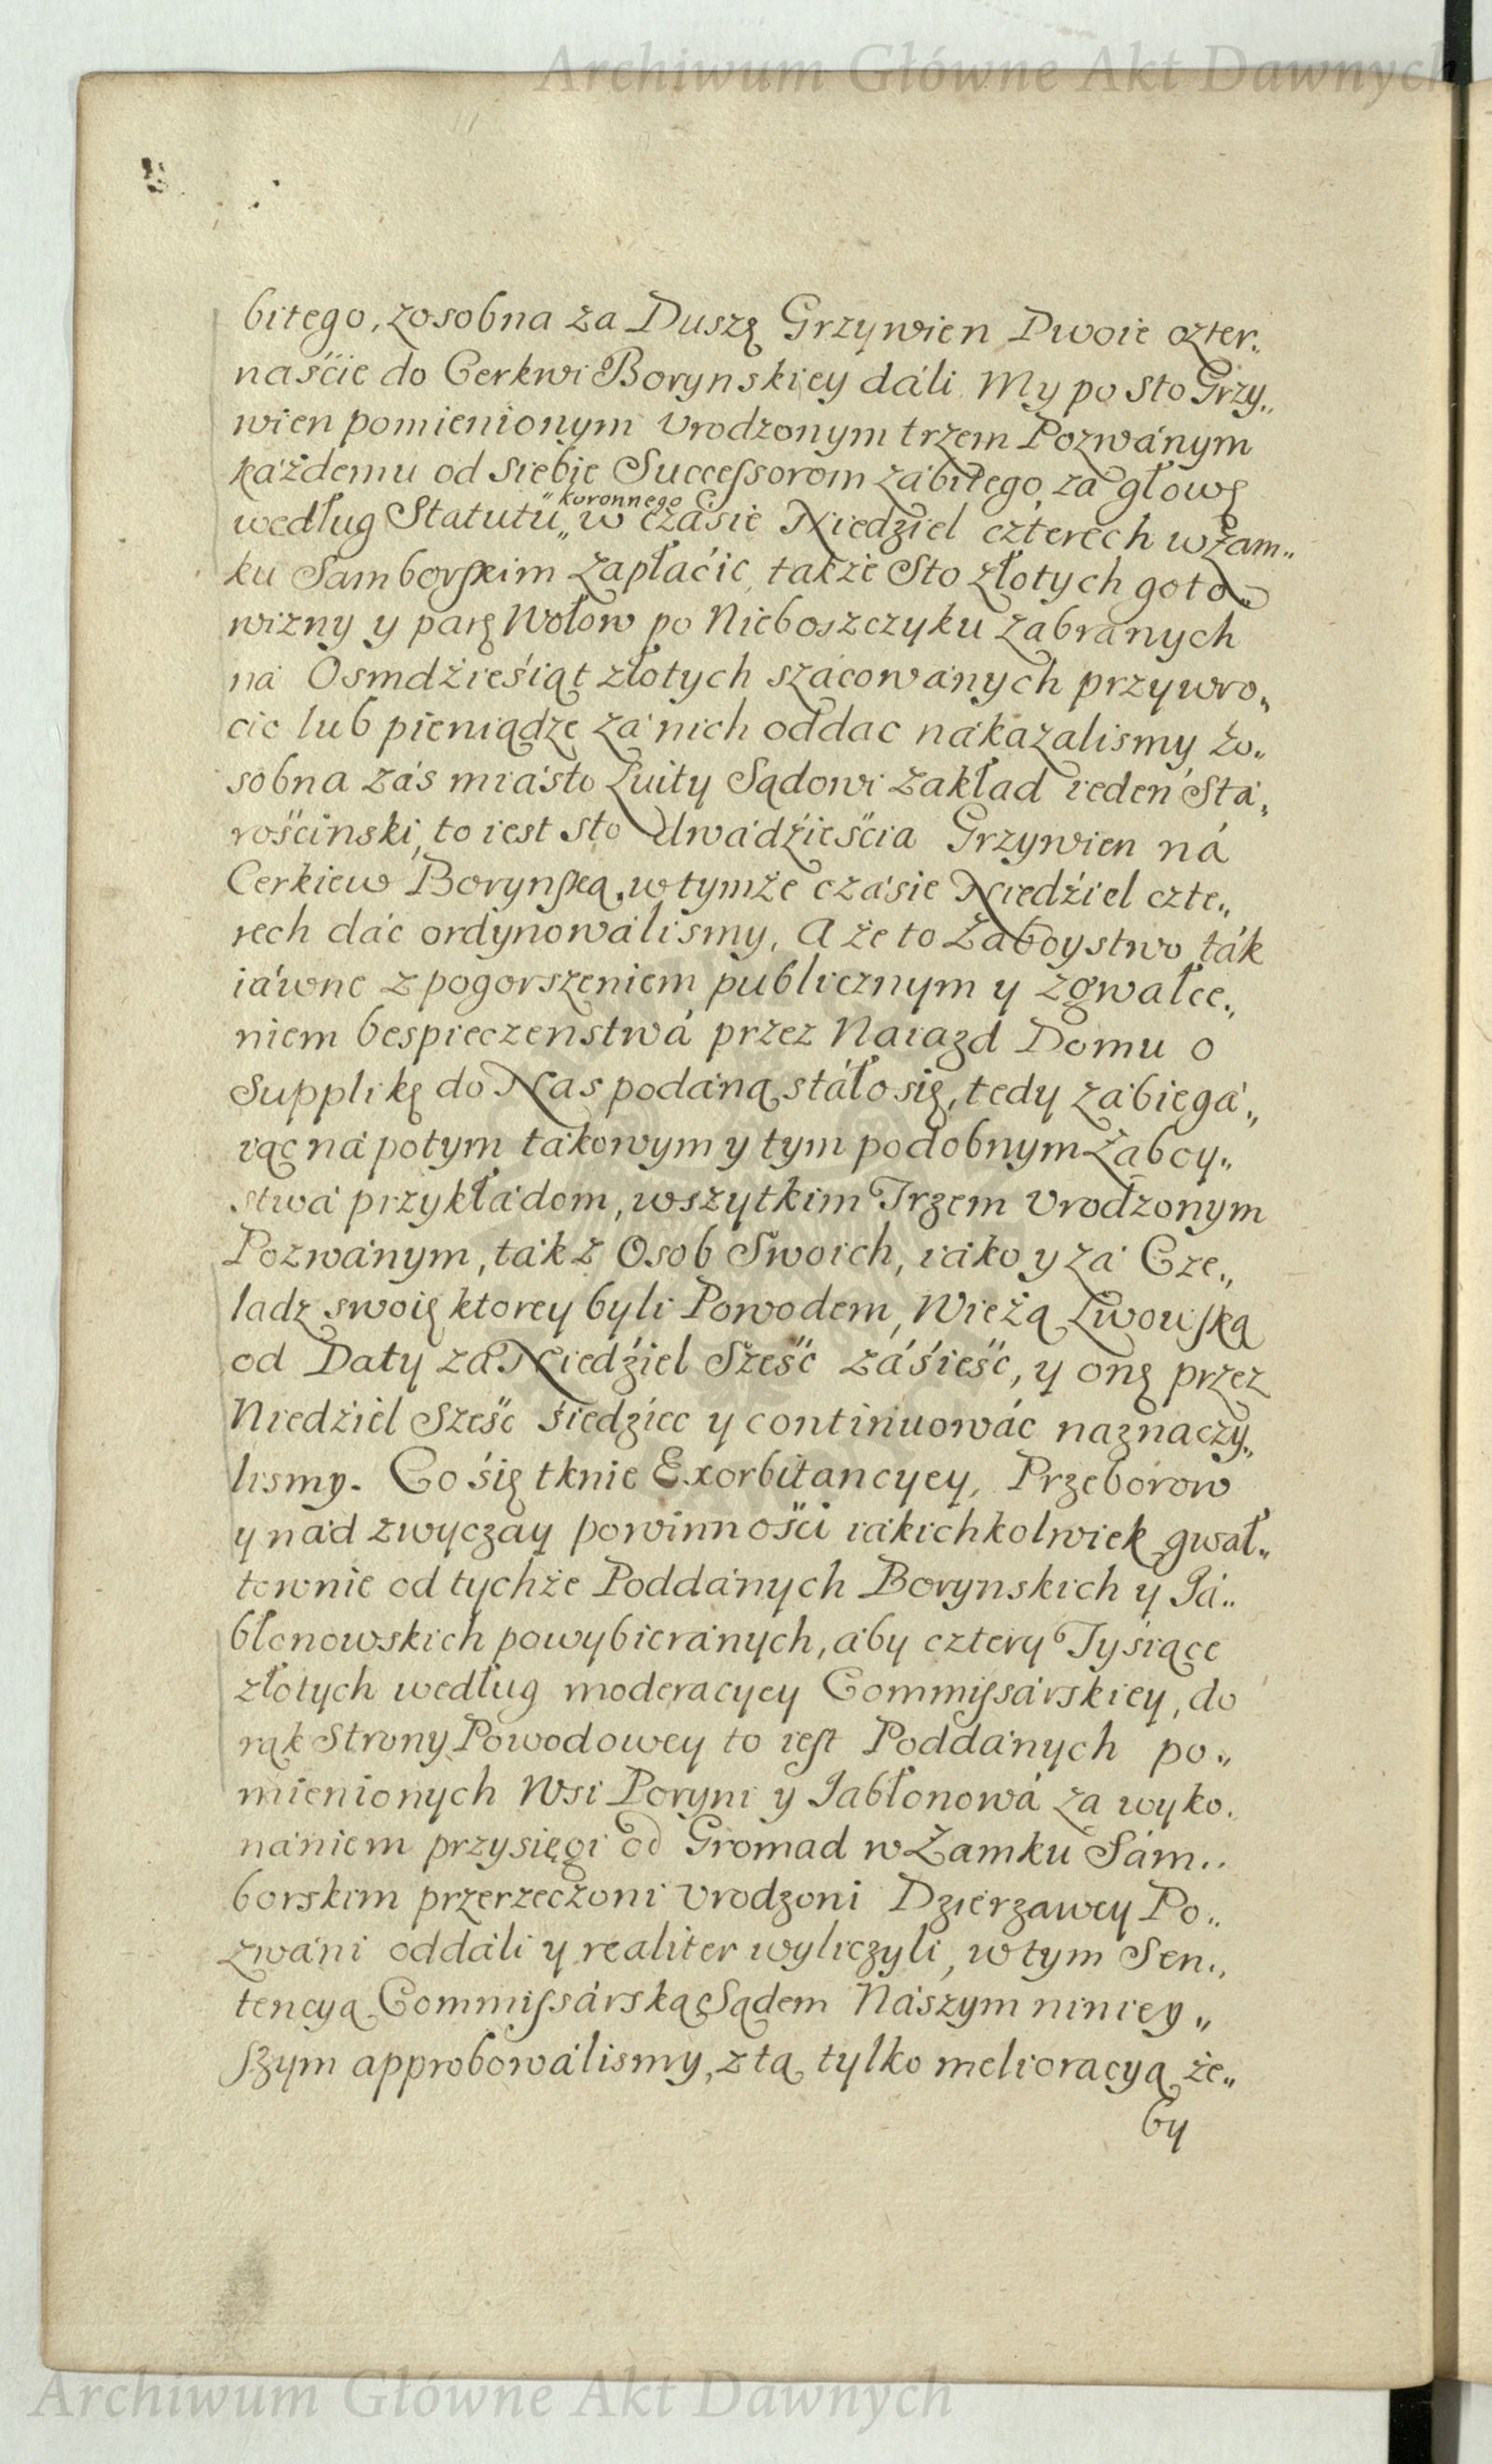 Archiwum Główne Akt Dawnych
bitego, zosobna za Duszę Grzywien Dwoie czter„
naście do Cerkwi Borynskiey dáli My po Sto Grzy„
wien pomienionym Vrodzonym trzem Pozwánym
káżdemu od siebie Successorom zábitego za głowę
według Statutu „koronnego„ w czásie Niedziel czterech w Zam„
ku Samborskim zapłácić, także Sto złotych goto„
wizny y parę Wołow po Nieboszczyku zabránych
ná Osmdźieśiąt złotych szácowánych przywro„
cic lub pieniądze zá nich oddac nákazalismy, zo„
sobna zás miásto Luity Sądowi zakład ieden Stá„
rościnski, to iest sto dwádźieścia Grzywien ná
Cerkiew Borynską, w tymże czásie Niedźiel czte„
rech dác ordynowálismy, A że to Zaboystwo ták
iáwne z pogorszeniem publicznym y zgwałce„
niem bespieczenstwá przez Naiazd Domu o
Supplikę do Nas podáną stáło się, tedy zábiegá„
iąc ná potym tákowym y tym podobnym Zaboy„
stwá przykłádom, wszytkim Trzem Vrodzonym
Pozwánym, ták z Osob Swoich, iáko y zá Cze„
ladz swoię ktorey byli Powodem, Wieżą Lwowską
od Daty zá Niedźiel Sześć záśieść, y onę przez
Niedźiel Sześć śiedziec y continuowác naznaczy„
lismy. Co się tknie Exorbitancyey, Przeborow
y nád zwyczay powinności iákichkolwiek gwał„
townie od tychże Poddánych Borynskich y Já„
błonowskich powybieránych, áby cztery Tyśiące
złotych według moderacyey Commissárskiey, do
rąk Strony Powodowey to iest Poddánych po„
mienionych Wsi Boryni y Jabłonowá za wyko„
nániem przysięgi od Gromad w Zamku Sám„
borskim przerzeczoni Vrodzoni Dzierzawcy Po„
zwáni oddáli y realiter wyliczyli, w tym Sen„
tencyą Commissárską Sądem Nászym niniey„
szym approbowálismy, z tą tylko melioracyą że„
by
Archiwum Główne Akt Dawnych